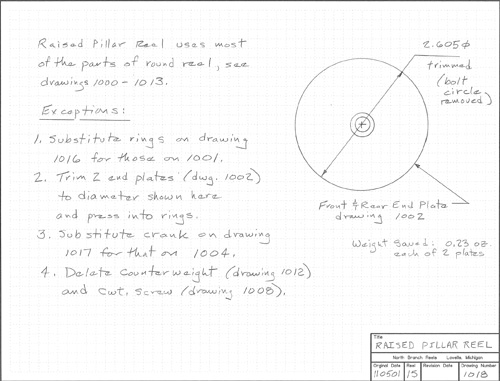 Raised Pillar Reel uses most
of the parts of round reel, see
drawings 1000-1013.
Exceptions:
1. Substitute rings on drawing
1016 for those on 1001.
2. Trim 2 end plates (dwg. 1002)
to diameter shown here
and press into rings.
3. Substitute crank on drawing
1017 for that on 1004.
4. Delete Counterweight (drawing 1012)
and Cwt. Screw (drawing 1008).
2.605ø
trimmed
(bolt
circle
removed)
Front & Rear End Plate
drawing 1002
Weight Saved: 0.23 oz.
each of 2 plates
Title
RAISED PILLAR REEL
North Branch Reels Lovells, Michigan
Original Date Reel Revision Date Drawing Number
110501 15 1018